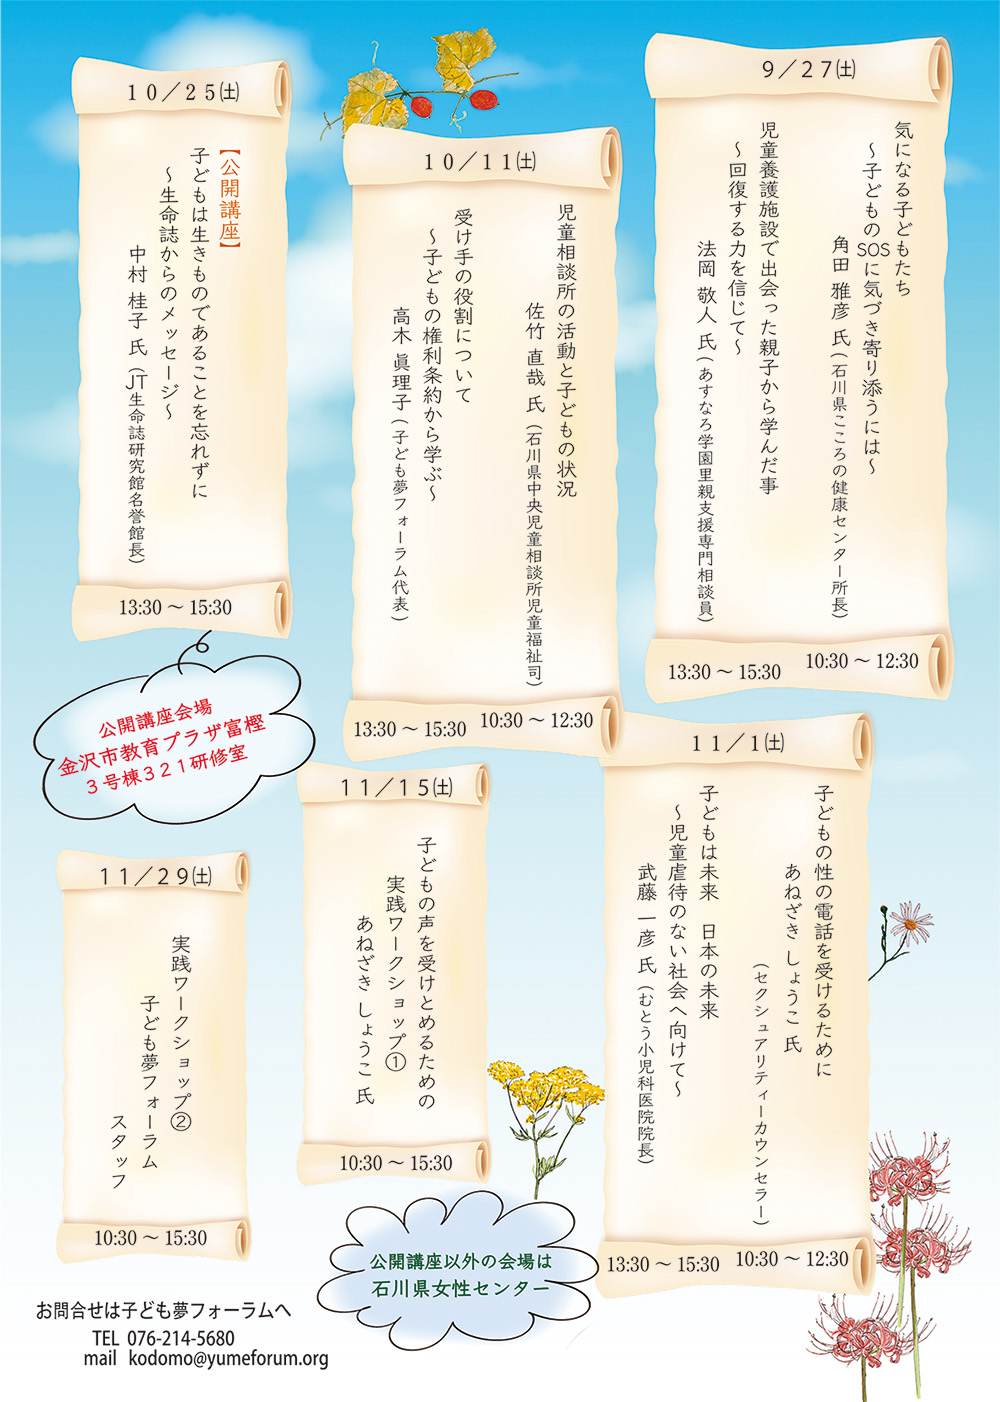 9／27㈯
気になる子どもたち
～子どものSOSに気づき寄り添うには～
角田 雅彦 氏（石川県こころの健康センター所長）
児童養護施設で出会った親子から学んだ事
～回復する力を信じて～
法岡 敬人 氏（あすなろ学園里親支援専門相談員）
10:30 ～ 12:30
13:30 ～ 15:30
10／11㈯
児童相談所の活動と子どもの状況
佐竹 直哉 氏（石川県中央児童相談所児童福祉司）
受け手の役割について
～子どもの権利条約から学ぶ～
高木 眞理子（子ども夢フォーラム代表）
10:30 ～ 12:30
13:30 ～ 15:30
10／25㈯
【公開講座】
子どもは生きものであることを忘れずに
～生命誌からのメッセージ～
中村 桂子 氏（JT生命誌研究館名誉館長）
13:30 ～ 15:30
公開講座会場
金沢市教育プラザ富樫
３号棟３２１研修室
11／1㈯
子どもの性の電話を受けるために
あねざき しょうこ 氏
（セクシュアリティーカウンセラー）
子どもは未来　日本の未来
～児童虐待のない社会へ向けて～
武藤 一彦 氏（むとう小児科医院院長）
10:30 ～ 12:30
13:30 ～ 15:30
11／15㈯
子どもの声を受けとめるための
実践ワークショップ①
あねざき しょうこ 氏
10:30 ～ 15:30
11／29㈯
実践ワークショップ②
子ども夢フォーラム
スタッフ
10:30 ～ 15:30
公開講座以外の会場は
石川県女性センター
お問合せは子ども夢フォーラムへ
TEL 076-214-5680
mail kodomo@yumeforum.org